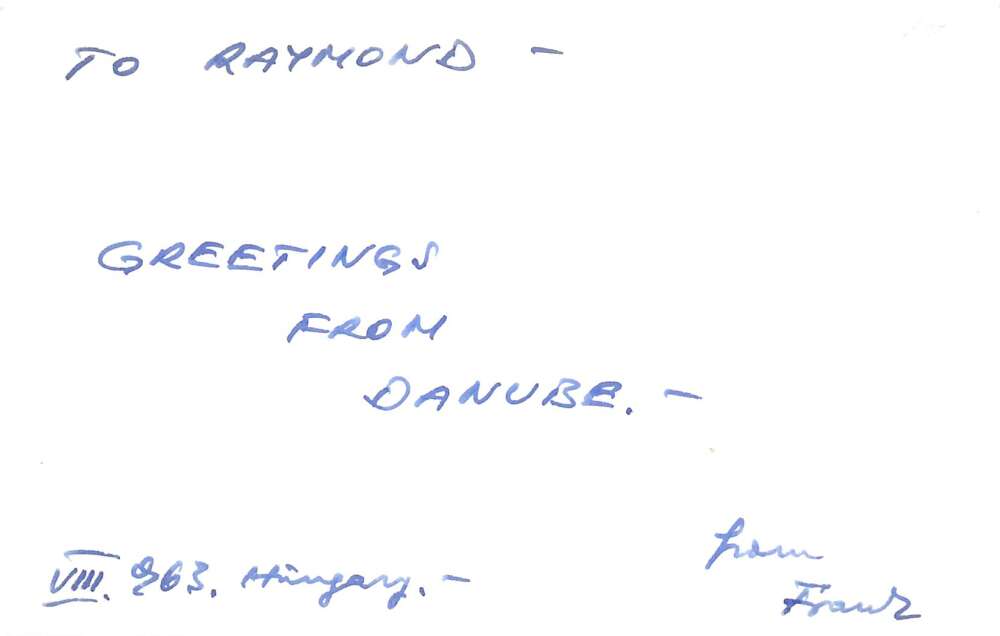 TO RAYMOND –
GREETINGS
FROM
DANUBE. –
from
VIII. 963. Hungary. –
Frank